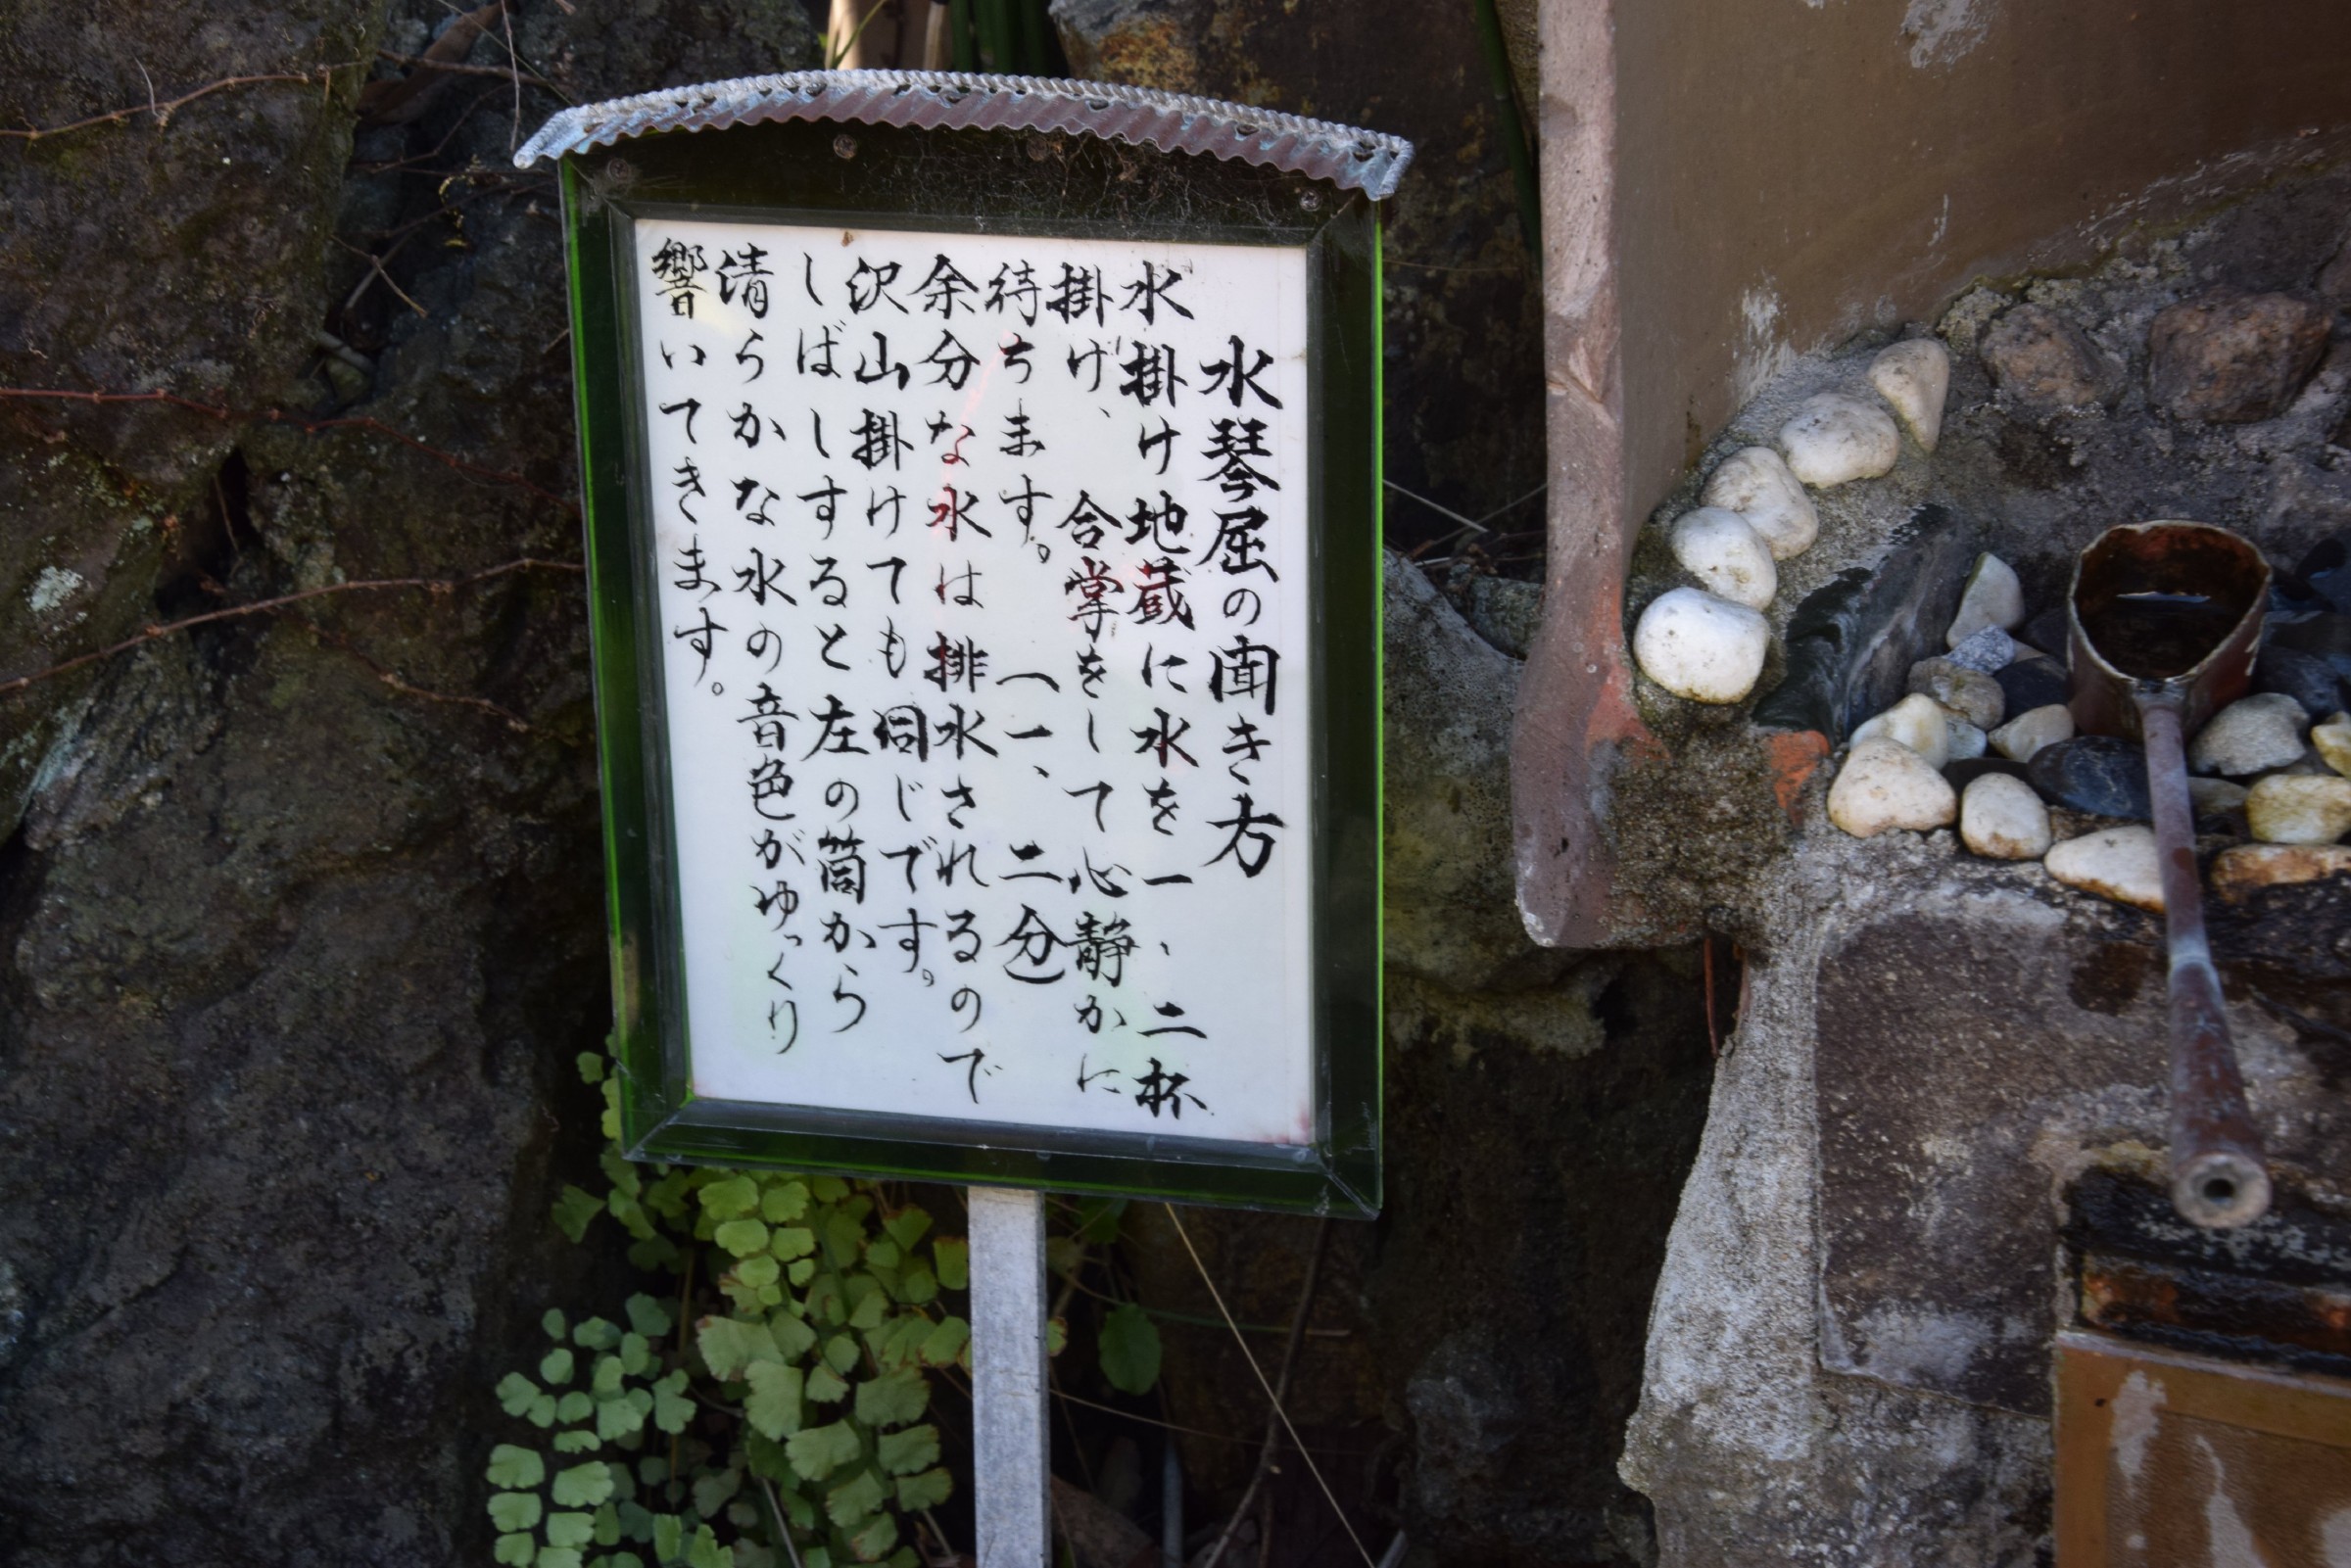 水琴屈の聞き方
水掛け地蔵に水を一、二杯
掛け、合掌をして心静かに
待ちます。(一、二分)
余分な水は排水されるので
沢山掛けても同じです。
しばしすると左の筒から
清らかな水の音色がゆっくり
響いてきます。